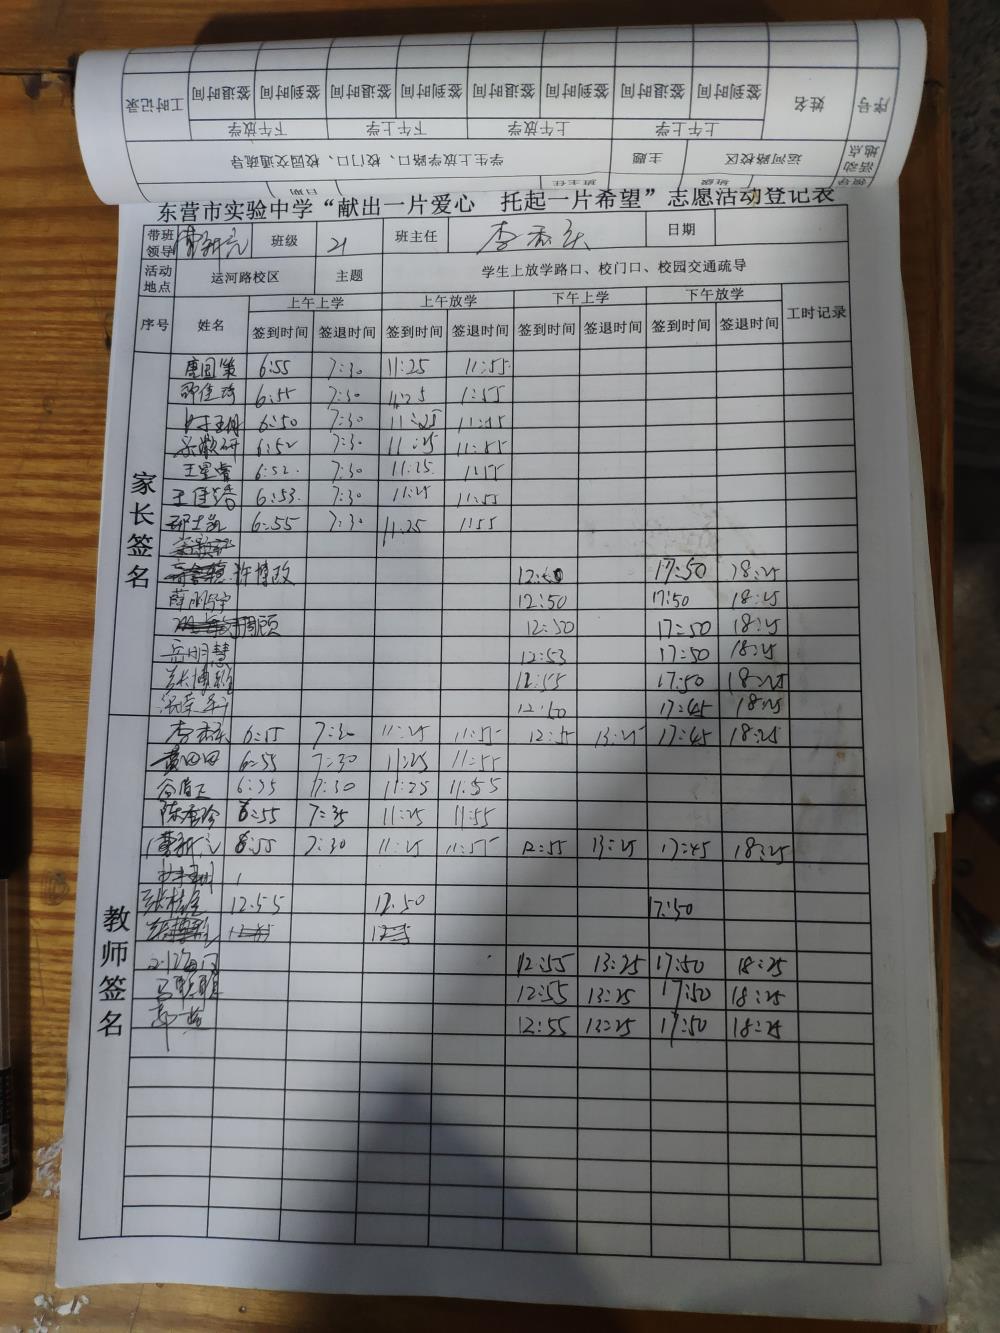 工时记录 签退时间 签到时间 签退时间 签到时间 签退时间 签到时间 签退时间 签到时间 姓名 序号
下午放学 下午上学 上午放学 上午上学
学生上放学路口、校门口、校园交通疏导 主题 运河路校区 活动地点
日期 班主任 班级 领导
东营市实验中学“献出一片爱心 托起一片希望”志愿活动登记表
带班领导 班级 21 班主任 日期
活动地点 运河路校区 主题 学生上放学路口、校门口、校园交通疏导
序号 姓名 上午上学 上午放学 下午上学 下午放学 工时记录
签到时间 签退时间 签到时间 签退时间 签到时间 签退时间 签到时间 签退时间
家长签名
6:55 7:30 11:25 11:55
邵佳琦 6:55 7:30 11:25 1:55
6:50 7:30 11:25 11:55
6:52 7:30 11:25 11:55
王星睿 6:52 7:30 11:25
王佳 6:53 7:30 11:25 11:55
6:55 7:30 11:25 1:55
许博政 17:50 18:25
薛 宇 12:50 17:50 18:25
周顾 12:50 17:50 18:25
岳明慧 12:53 17:50 18:25
博 12:55 17:50 18:25
17:45 18:25
教师签名
李 6:55 7:30 11:25 11:55 12:55 13:25 17:45 18:25
黄田田 6:55 7:30 11:25 11:55
谷 7:30 11:25 11:55
陈 珍 6:55 7:35 11:25 11:55
曹新 6:55 7:30 11:25 11:55 12:55 13:25 17:45 18:25
张 12:55 12:50 17:50
12:55 13:25 17:50 18:25
马 12:55 13:25 17:50 18:25
郭 12:55 13:25 17:50 18:25